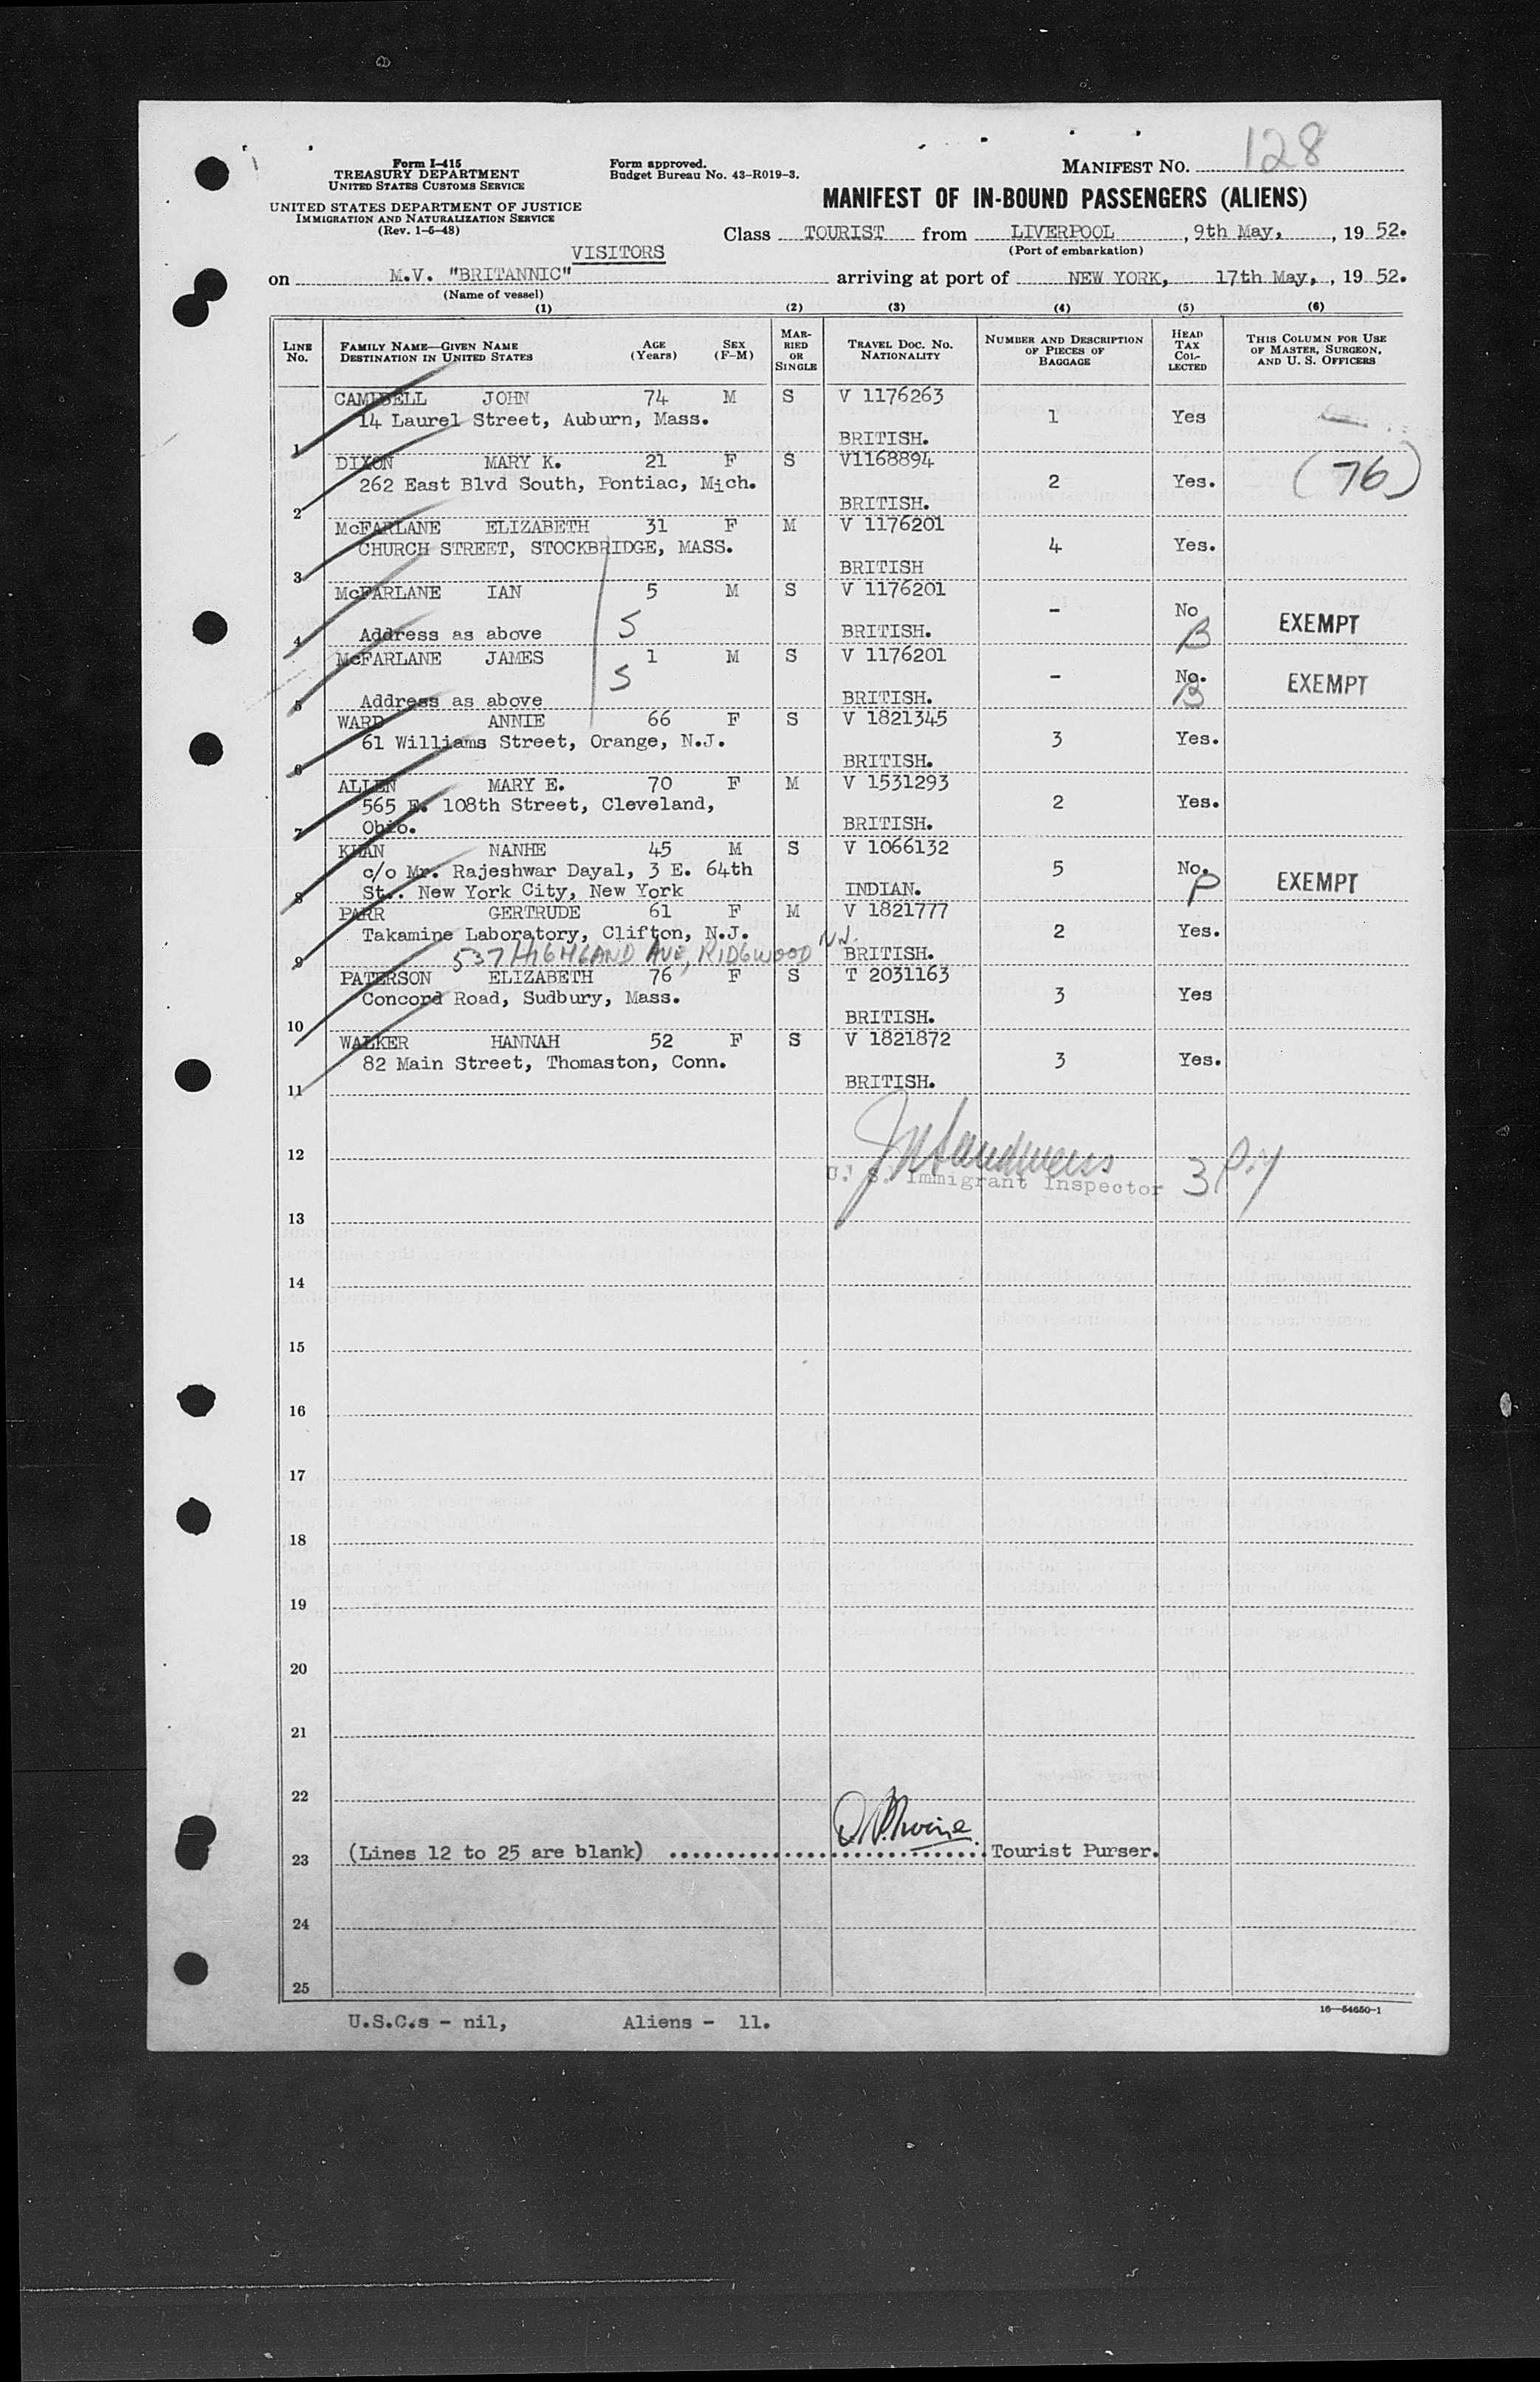 Form I-415
TREASURY DEPARTMENT
UNITED STATES CUSTOMS SERVICE
UNITED STATES DEPARTMENT OF JUSTICE
IMMIGRATION AND NATURALIZATION SERVICE
(Rev. 1-5-48)
Form approved.
Budget Bureau No. 43-R019-3.
MANIFEST NO. 128
MANIFEST OF IN-BOUND PASSENGERS (ALIENS)
Class TOURIST from LIVERPOOL, 9th May, , 19 52.
(Port of embarkation)
VISITORS
on M.V. "BRITANNIC" arriving at port of NEW YORK, 17th May, , 19 52.
(Name of vessel)
(1) (2) (3) (4) (5) (6)
LINE No. FAMILY NAME—GIVEN NAME DESTINATION IN UNITED STATES AGE (Years) SEX (F-M) MARRIED OR SINGLE TRAVEL DOC. NO. NATIONALITY NUMBER AND DESCRIPTION OF PIECES OF BAGGAGE HEAD TAX COLLECTED THIS COLUMN FOR USE OF MASTER, SURGEON, AND U. S. OFFICERS
CAMPBELL JOHN 74 M S V 1176263
14 Laurel Street, Auburn, Mass. 1 Yes
1 BRITISH.
DIXON MARY K. 21 F S V1168894
262 East Blvd South, Pontiac, Mich. 2 Yes. (76)
2 BRITISH.
McFARLANE ELIZABETH 31 F M V 1176201
CHURCH STREET, STOCKBRIDGE, MASS. 4 Yes.
3 BRITISH
McFARLANE IAN 5 M S V 1176201
- No
4 Address as above S BRITISH. B EXEMPT
McFARLANE JAMES 1 M S V 1176201
S - No. B EXEMPT
5 Address as above BRITISH.
WARD ANNIE 66 F S V 1821345
61 Williams Street, Orange, N.J. 3 Yes.
6 BRITISH.
ALLEN MARY E. 70 F M V 1531293
565 E. 108th Street, Cleveland, 2 Yes.
7 Ohio. BRITISH.
KHAN NANHE 45 M S V 1066132
c/o Mr. Rajeshwar Dayal, 3 E. 64th 5 No. P EXEMPT
8 St.. New York City, New York INDIAN.
PARR GERTRUDE 61 F M V 1821777
Takamine Laboratory, Clifton, N.J. 2 Yes.
9 537 HIGHLAND AVE, RIDGWOOD N.J. BRITISH.
PATERSON ELIZABETH 76 F S T 2031163
Concord Road, Sudbury, Mass. 3 Yes
10 BRITISH.
WALKER HANNAH 52 F S V 1821872
82 Main Street, Thomaston, Conn. 3 Yes.
11 BRITISH.
12
U. S. Immigrant Inspector 3
13
14
15
16
17
18
19
20
21
22
23 (Lines 12 to 25 are blank) Tourist Purser.
24
25
16—54650-1
U.S.C.s - nil, Aliens - 11.